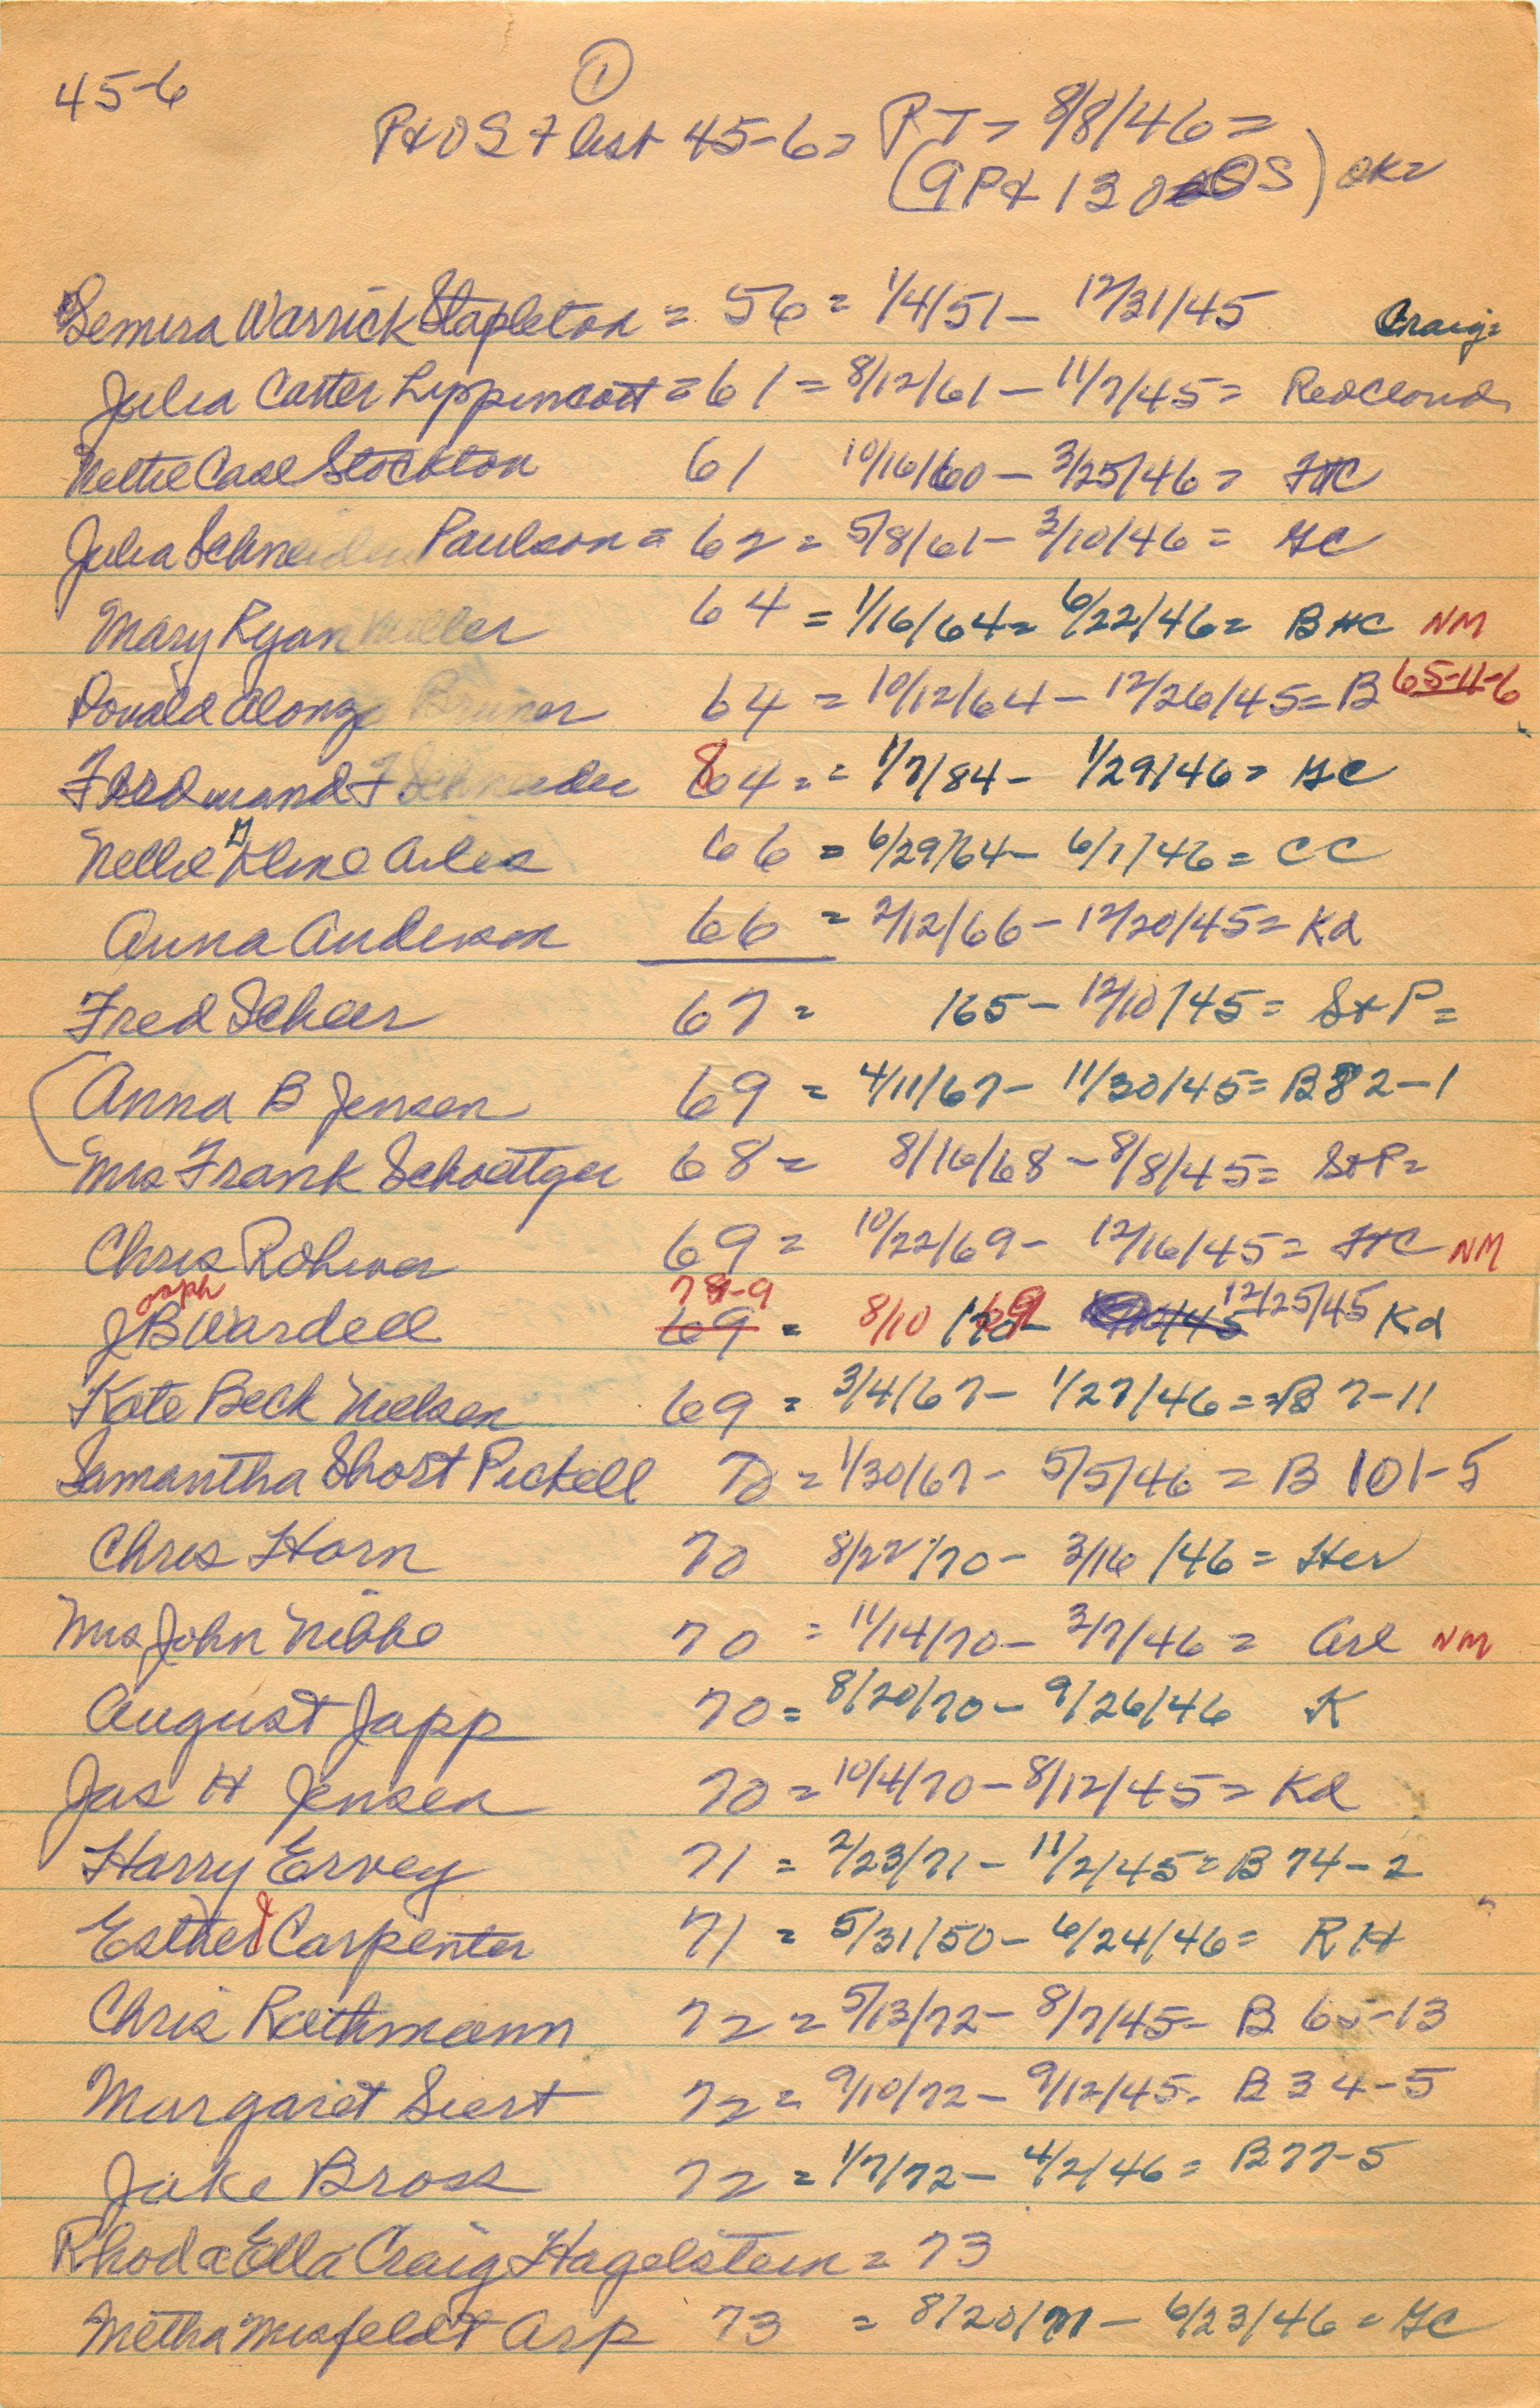 45-6
1
P & OS 7 list 45-6 = RT = 8/8/46 =
(9 P & 130 OS) OK =
Semira Warrick Stapleton = 56 = 1/4/51 - 12/31/45 Craig =
Julia Carter Lippincott = 61 = 8/12/61 - 11/7/45 = Redcloud
Nettie Case Stockton 61 10/16/60 - 3/25/46 = FtC
Julia Schneider Paulson = 62 = 5/8/61 - 3/10/46 = GC
Mary Ryan Miller 64 = 1/16/64 = 6/22/46 = BHC NM
Donald Alonzo Bruner 64 = 10/12/64 - 12/26/45 = B 65-11-6
Ferdinand F Schneider 84 = = 1/7/84 - 1/29/46 = GC
Nellie G Kline Ailes 66 = 6/29/64 - 6/1/46 = CC
Anna Anderson 66 = 2/12/66 - 12/20/45 = Kd
Fred Scheer 67 = /65 - 12/10/45 = St P =
Anna B Jensen 69 = 4/11/67 - 11/30/45 = B 82-1
Mrs Frank Schoettger 68 = 8/16/68 - 8/8/45 = St P =
Chris Rohwer 69 = 10/22/69 - 12/16/45 = FtC NM
J oseph B Wardell 69 = 8/10 /69 - 12/25/45 Kd
Kate Beck Nielsen 69 = 3/4/67 - 1/27/46 = B 7-11
Samantha Short Pickell 70 = 1/30/67 - 5/5/46 = B 101-5
Chris Horn 70 8/22/70 - 3/16/46 = Her
Mrs John Nibbe 70 = 11/14/70 - 3/7/46 = Arl NM
August Japp 70 = 8/20/70 - 9/26/46 K
Jas H Jensen 70 = 10/4/70 - 8/12/45 = Kd
Harry Ervey 71 = 2/23/71 - 11/2/45 = B 74-2
Esther J Carpenter 71 = 5/31/50 - 6/24/46 = RH
Chris Rathmann 72 = 5/13/72 - 8/7/45 - B 65-13
Margaret Siert 72 = 9/10/72 - 9/12/45 - B 34-5
Jake Bross 72 = 1/7/72 - 4/2/46 = B 77-5
Rhoda Ella Craig Hagelstein = 73
Metha Misfeldt Arp 73 = 8/20/71 - 6/23/46 = GC